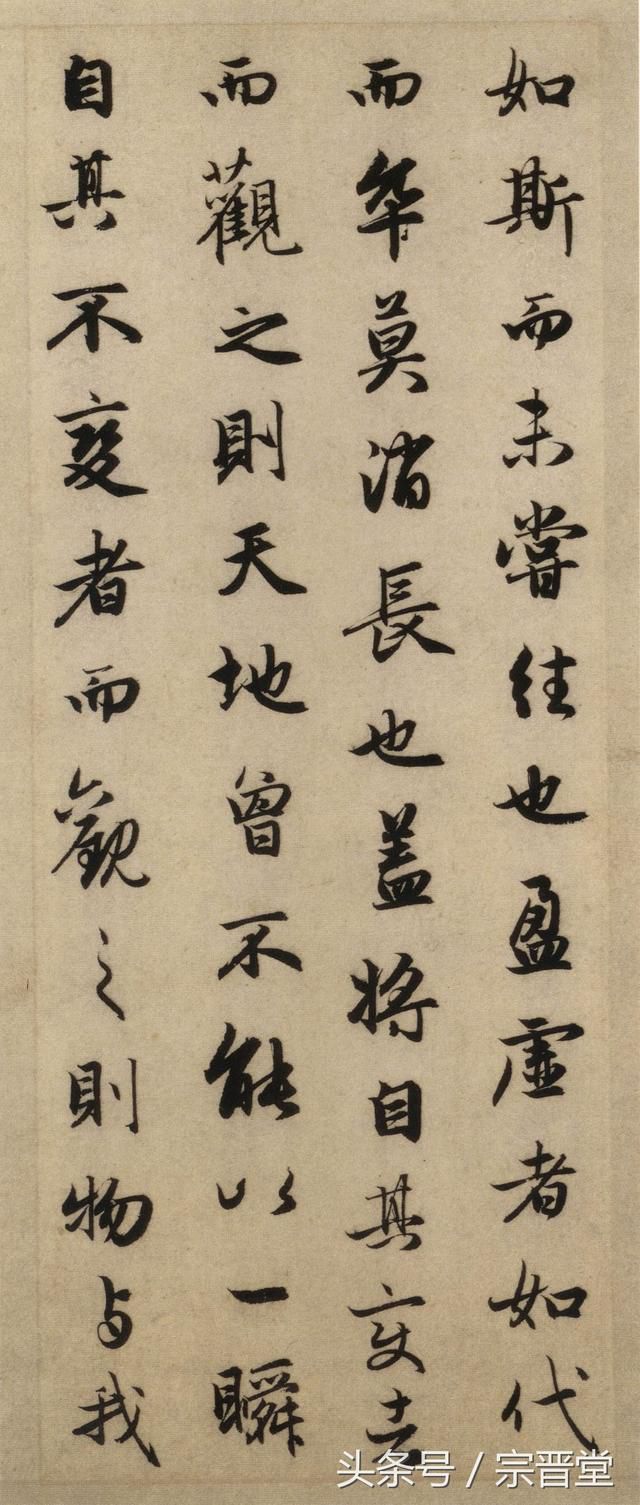 如斯而未嘗往也盈虛者如代
而卒莫消長也蓋將自其变者
而觀之則天地曾不能以一瞬
自其不變者而觀之則物与我
头条号 / 宗晋堂